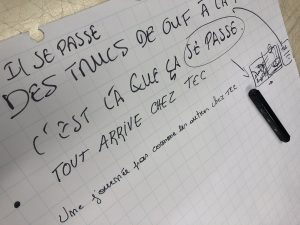 IL SE PASSE
DES TRUCS DE OUF À LA
C'EST LÀ QUE ÇA SE PASSE.
TOUT ARRIVE CHEZ TEC
Une journée pas comme les autres chez TEC